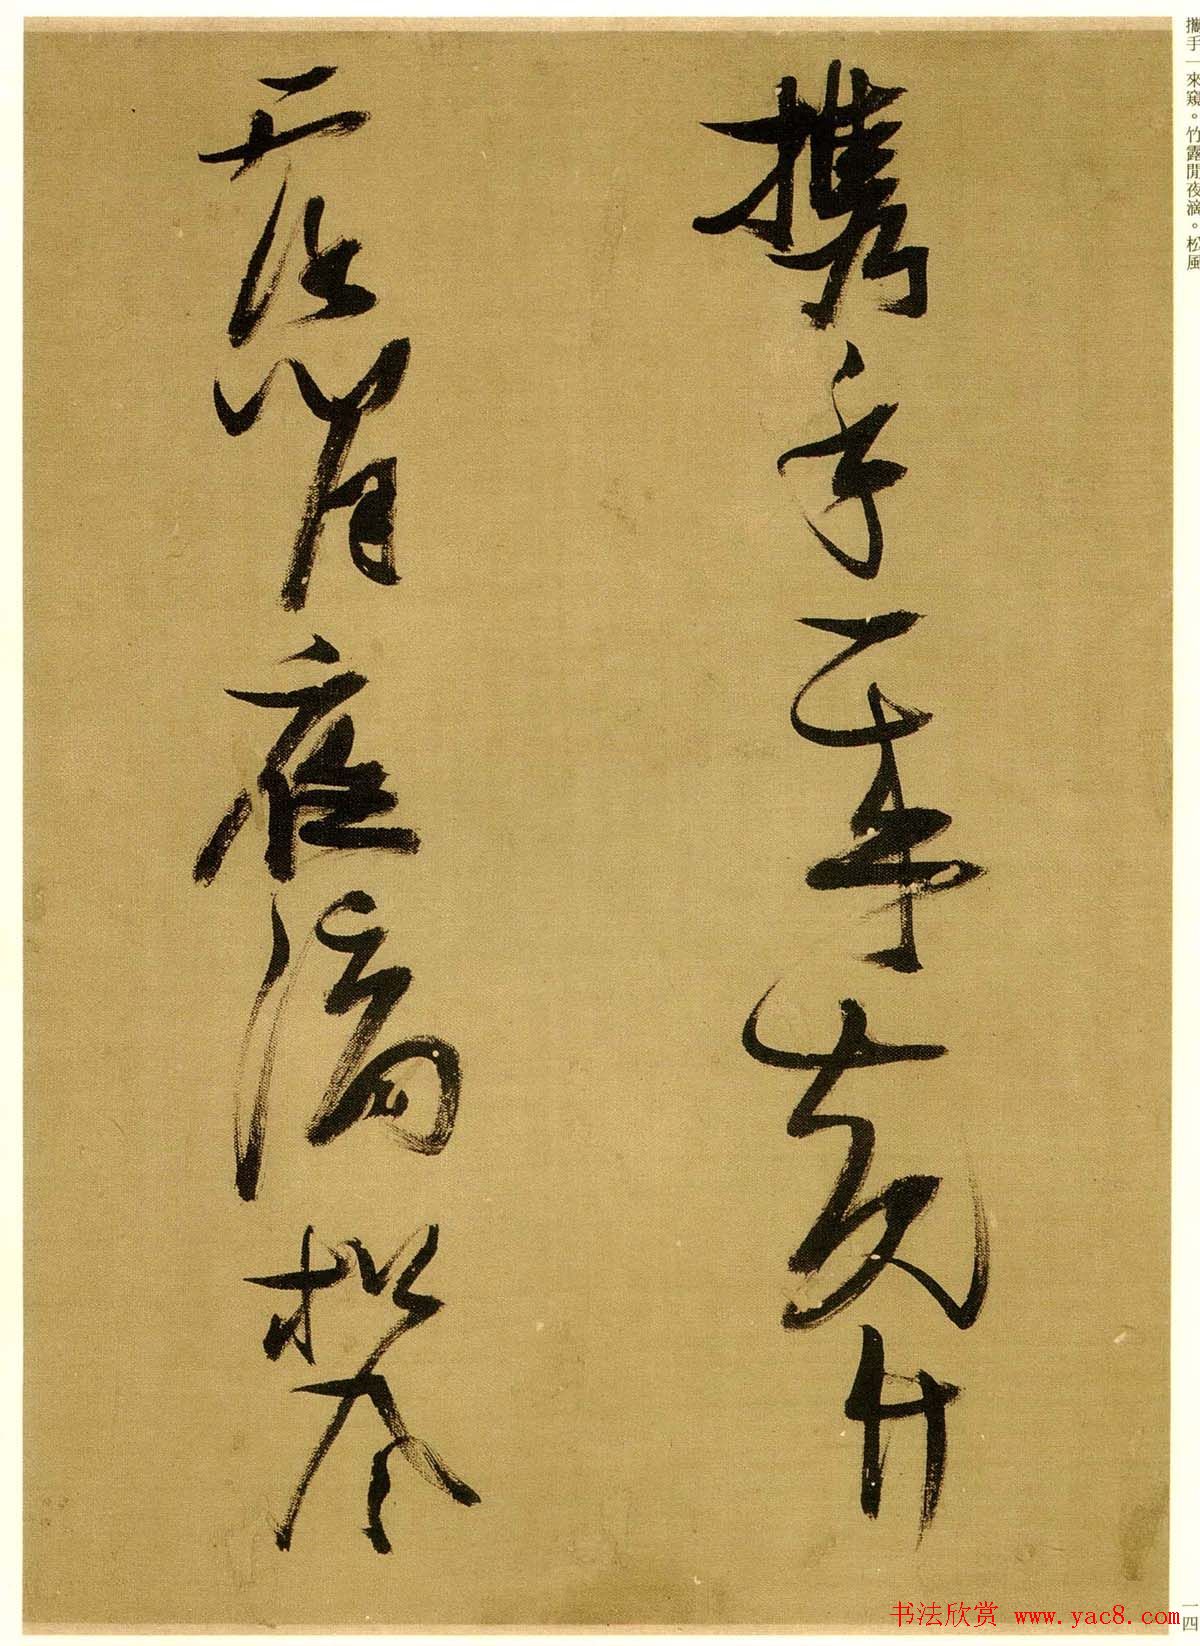 攜手一來窺。竹露閒夜滴。松風
攜手一來窺竹
露閒夜滴松風
一四
书法欣赏 www.yac8.com